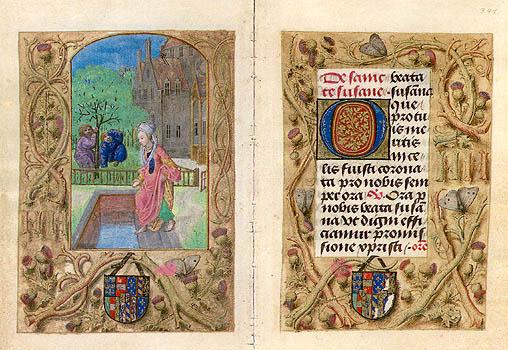 De sanc beata
te susane susana
O que
pro tu
is me
ritis in ce
lis fuisti corona
ta pro nobis sem
per ora V Ora p
nobis beata susa
na Vt digni effi
ciamur promis
sione xpristi oro